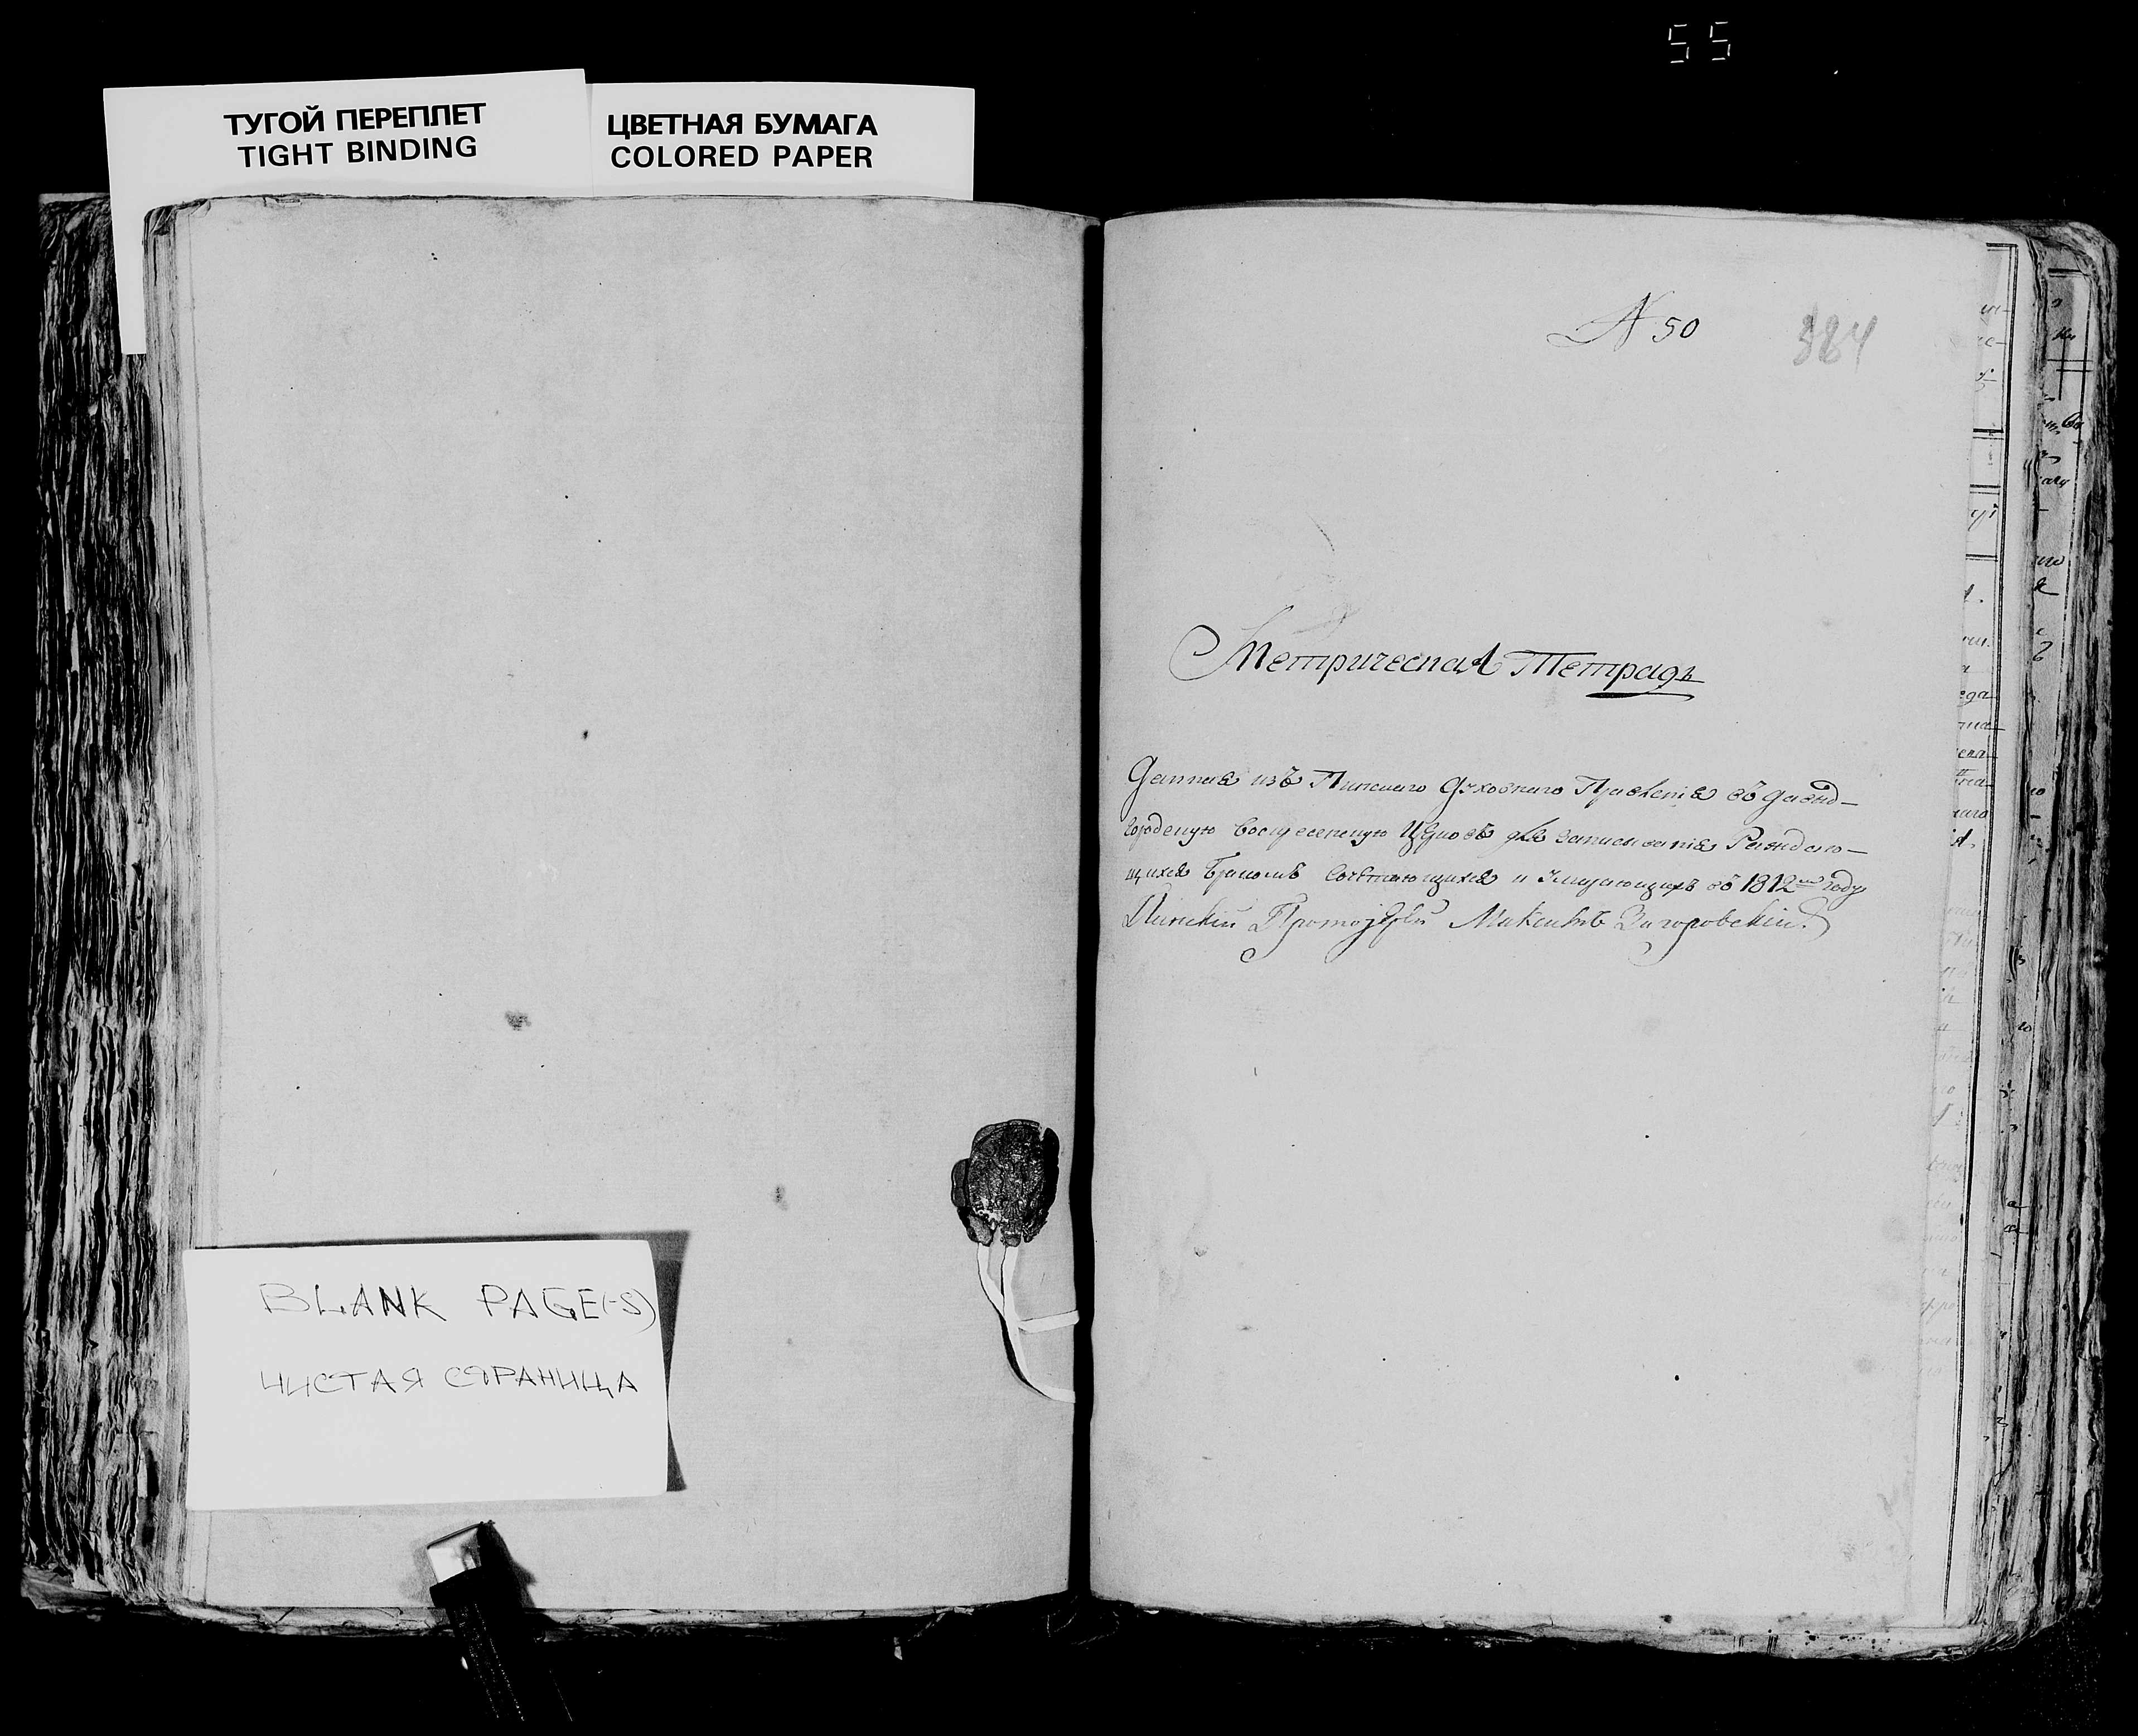 55
ТУГОЙ ПЕРЕПЛЕТ
TIGHT BINDING
ЦВЕТНАЯ БУМАГА
COLORED PAPER
BLANK PAGE(-S)
ЧИСТАЯ СТРАНИЦА
N 50
384
Метрическая Тетрадь
Данная изъ Пинскаго Духовнаго Правленія въ Давид-
городскую Воскресенскую Церковь для записыванія Раждаю-
щихся Бракомъ Сочетающихся и Умирающихъ въ 1812м году
Пинскій Протоіерей Максимъ Загоровскій